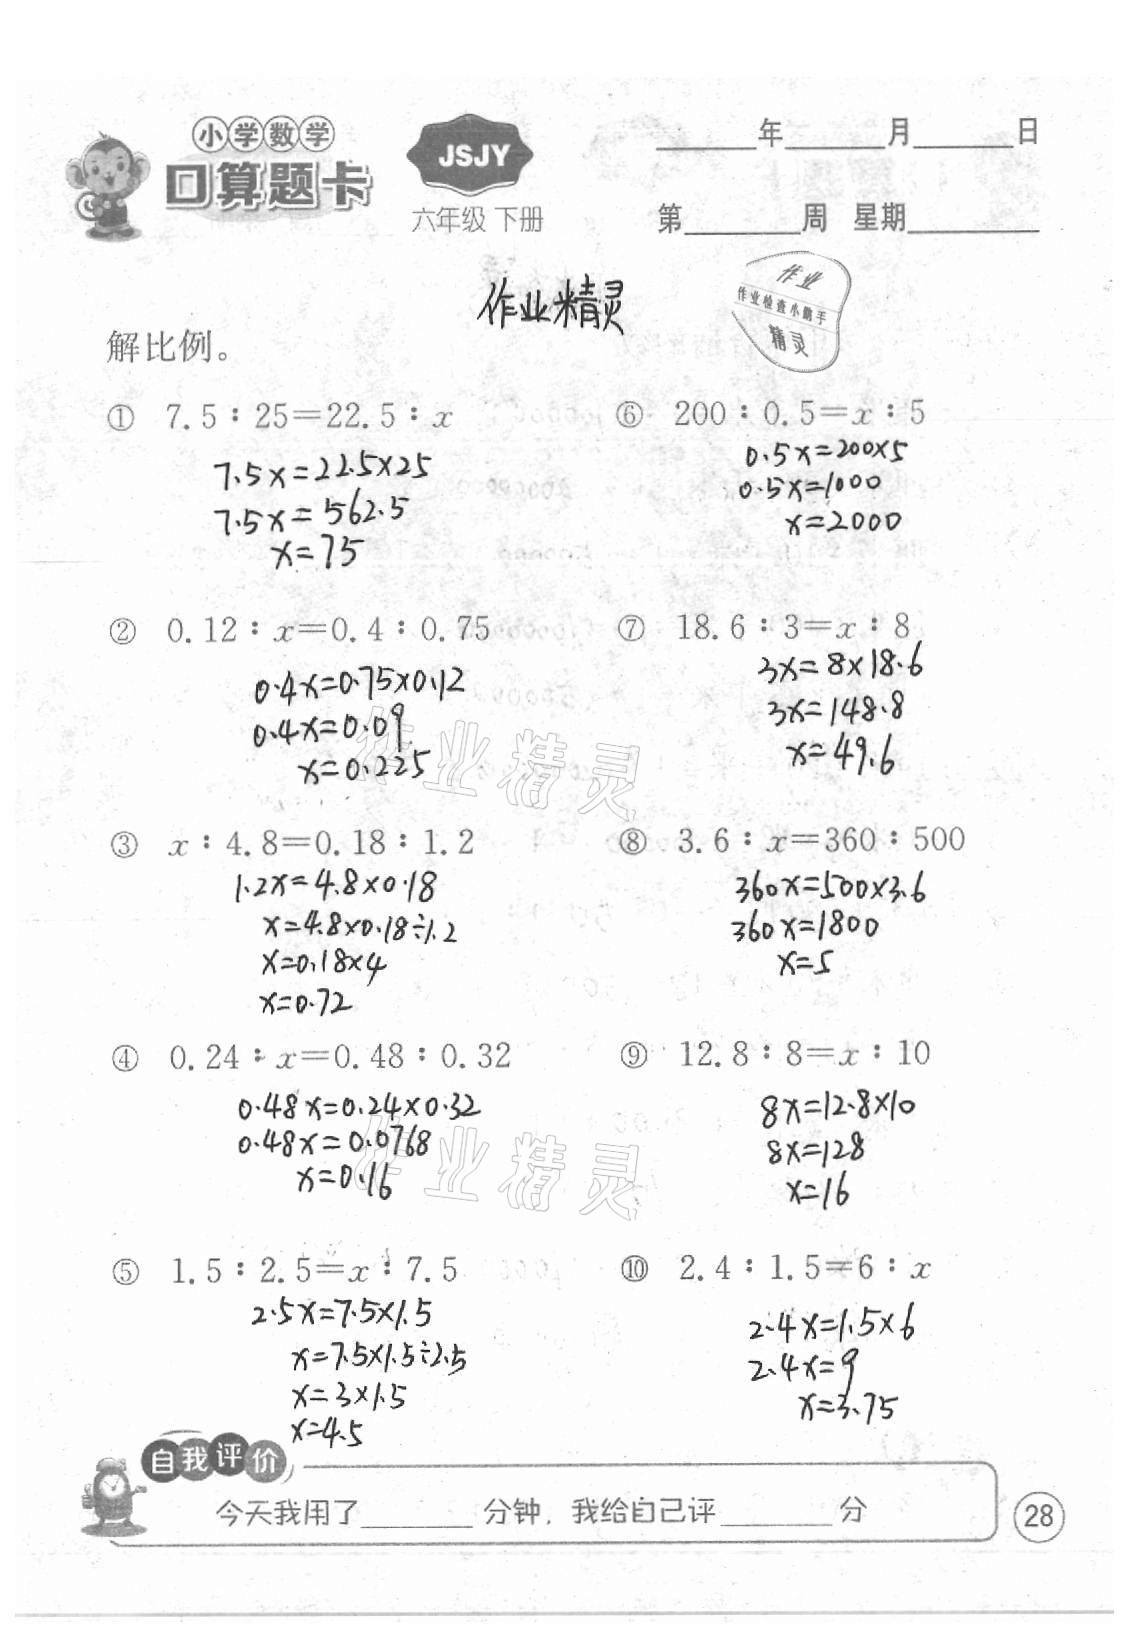 小学数学
口算题卡
JSJY
六年级 下册
____年____月____日
第____周 星期____
作业精灵
作业
作业检查小助手
精灵
解比例。
① 7.5∶25=22.5∶x
7.5x=22.5×25
7.5x=562.5
x=75
② 0.12∶x=0.4∶0.75
0.4x=0.75×0.12
0.4x=0.09
x=0.225
③ x∶4.8=0.18∶1.2
1.2x=4.8×0.18
x=4.8×0.18÷1.2
x=0.18×4
x=0.72
④ 0.24∶x=0.48∶0.32
0.48x=0.24×0.32
0.48x=0.0768
x=0.16
⑤ 1.5∶2.5=x∶7.5
2.5x=7.5×1.5
x=7.5×1.5÷2.5
x=3×1.5
x=4.5
⑥ 200∶0.5=x∶5
0.5x=200×5
0.5x=1000
x=2000
⑦ 18.6∶3=x∶8
3x=8×18.6
3x=148.8
x=49.6
⑧ 3.6∶x=360∶500
360x=500×3.6
360x=1800
x=5
⑨ 12.8∶8=x∶10
8x=12.8×10
8x=128
x=16
⑩ 2.4∶1.5=6∶x
2.4x=1.5×6
2.4x=9
x=3.75
作业精灵
作业精灵
自我评价
今天我用了____分钟，我给自己评____分
28